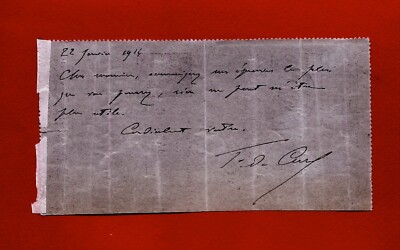 22 Janvier 1916
Cher monsieur, envoyez vos épreuves le plus
que vous pourrez, rien ne peut m'être
plus utile.
Cordialement votre.
T. de